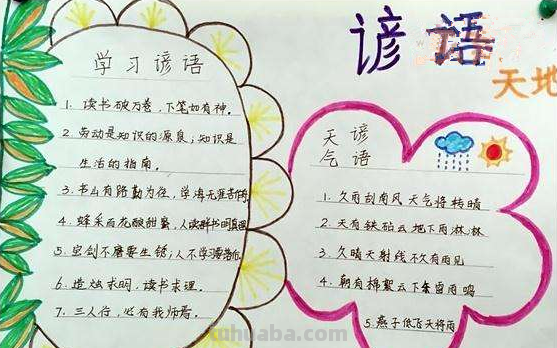 谚语
天地
学习谚语
1. 读书破万卷，下笔如有神。
2. 劳动是知识的源泉；知识是
生活的指南。
3. 书山有路勤为径，学海无涯苦作
4. 蜂采百花酿甜蜜，人读群书明真理
5. 宝剑不磨要生锈；人不学习要落后
6. 造烛求明，读书求理。
7. 三人行，必有我师焉。
天气
谚语
1. 久雨刮南风 天气将转晴
2. 天有铁砧云 地下雨淋淋
3. 久晴天射线 不久有雨见
4. 朝有棉絮云 下午雷雨鸣
5. 燕子低飞天将雨
tuhuaba.com